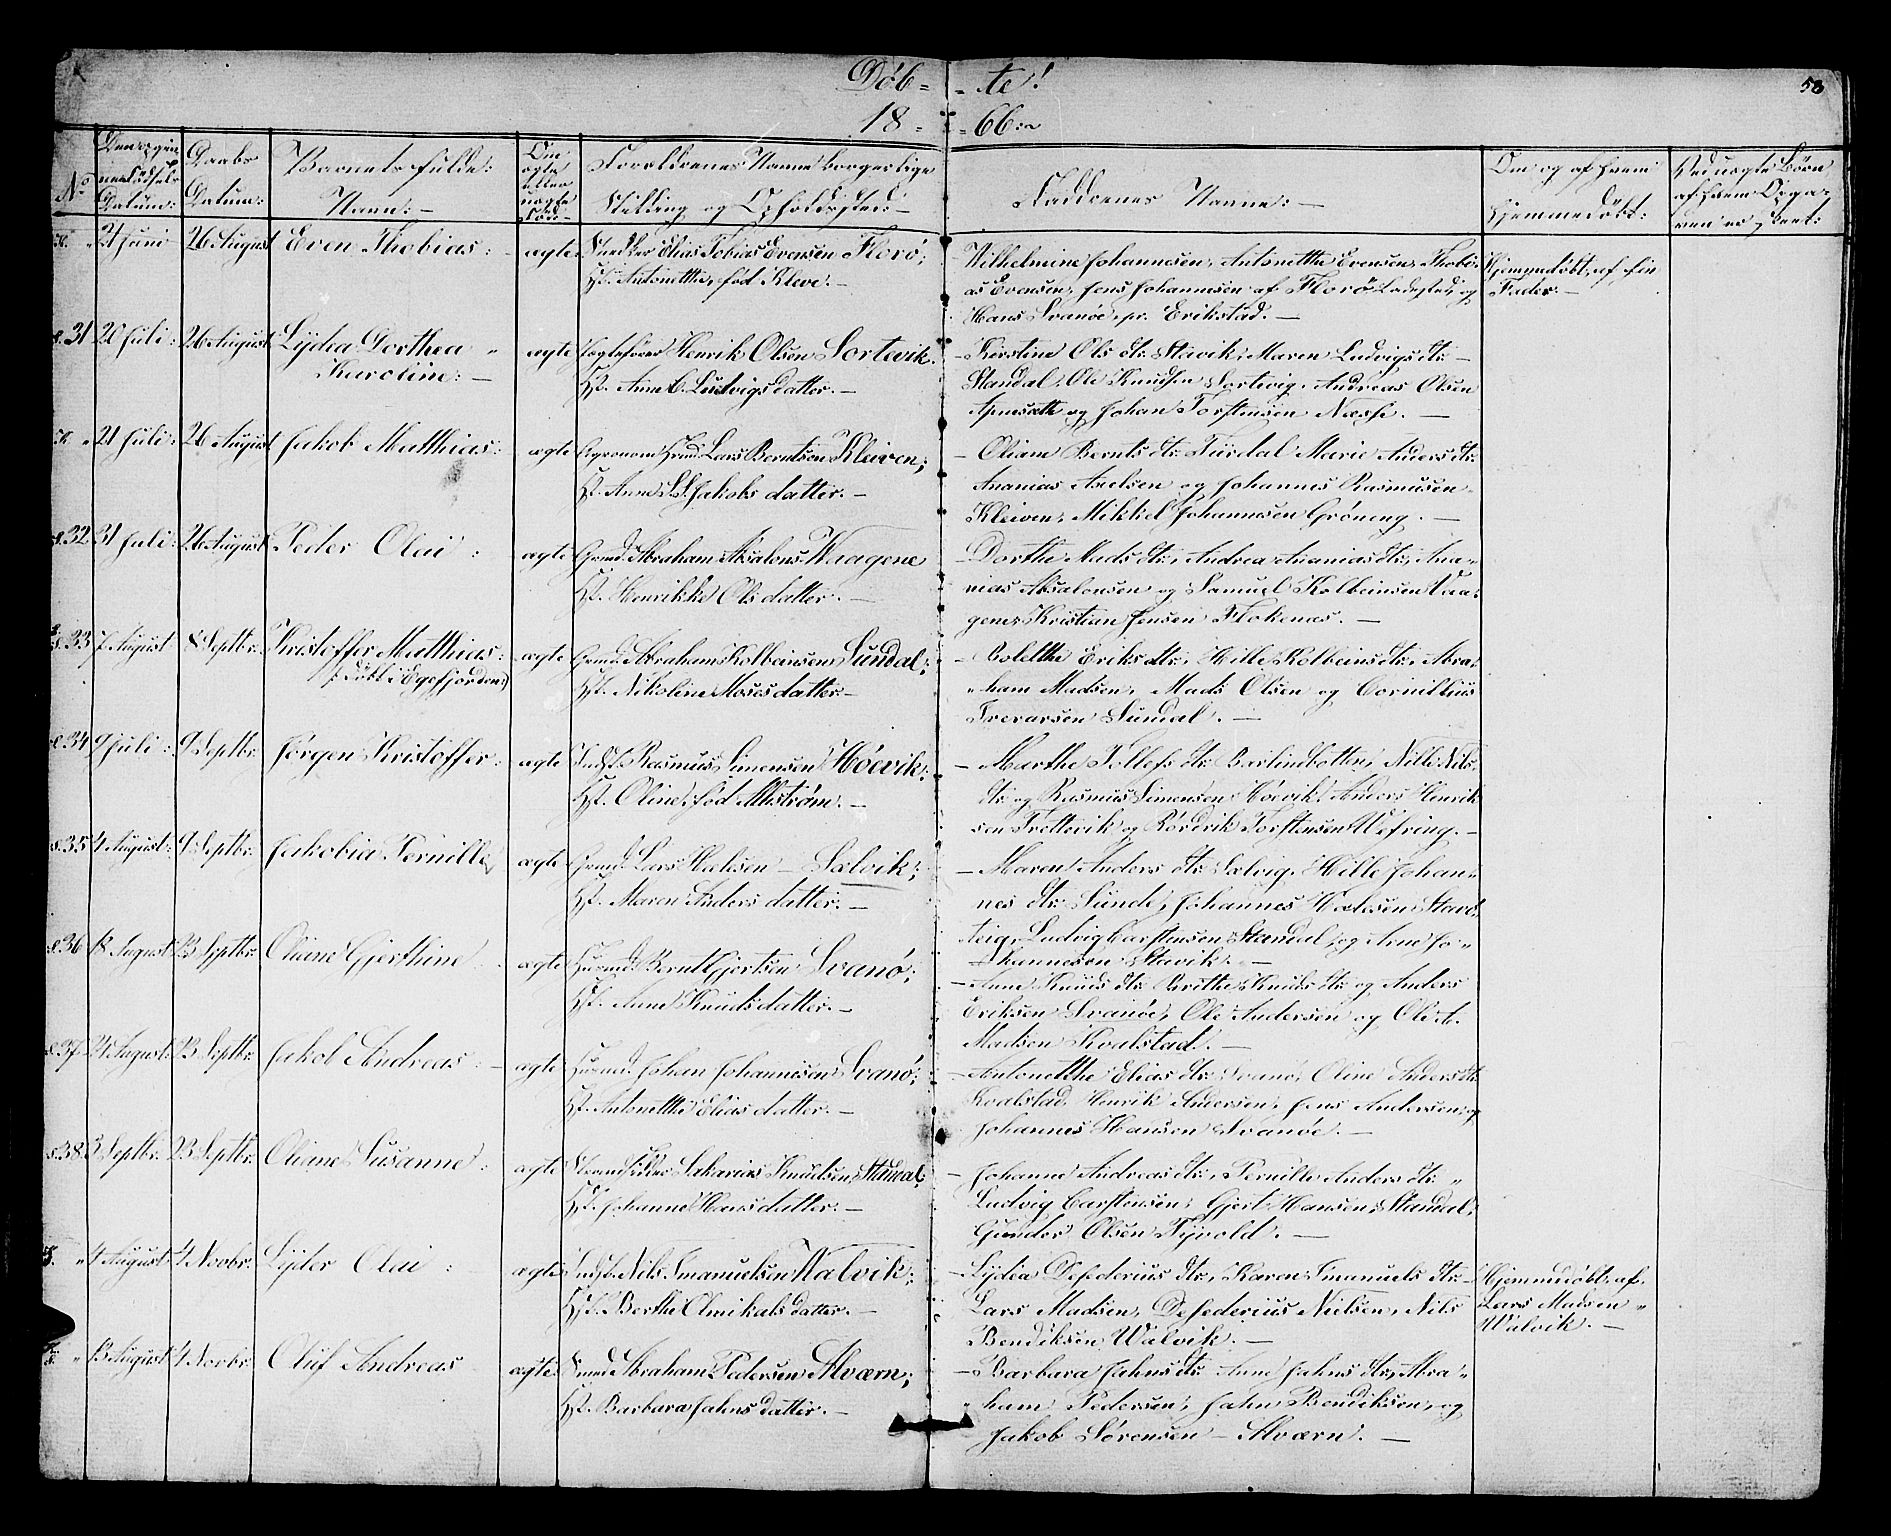 Döb= = te!
58
18 = = 66:
No
Den egen
Fødsels
Datum:
Daabs
Datum:
Barnets fulde:
Navn:—
Om
ægte
eller
uægte
Fød:—
Forældrenes Navne borgerlige
Stilling og Opholdssted:—
Faddernes Navne:—
Om og af hvem
hjemmedöbt:
Ved uægte Börn
af hvem Opga-
ven er skeet:
21 Juni 26 August Even Thobias: ægte Snedker Elias Tobias Evensen Florö;
H. Antonetthe, fød Kleve.—
Wilhelmine Johannesen, Antonetthe Evensen, Thobi-
as Evensen, Jens Johannesen af Florö Ladested, og
Hans Svanöe, pr. Erikstad.—
Hjemmedöbt, af sin
Fader.—
31 20 Juli: 26 August Lydia Dorthea
Karoline:—
ægte Henrik Olsen Sortevik.
H. Anne C. Ludvigsdatter.—
— Kirstine Ols dtr. Stavik, Maren Ludvigs dtr.—
Standal, Ole Knudsen Sortevig, Andreas Olsen
og Johan Torstensen Næsse.—
21 Juli: 26 August Jakob Matthias: ægte Agronom Lars Berntsen Kleiven;
H. Anne S. Jakobs datter.—
— Oliane Bernts dtr. Marie Anders dtr.
Ananias Axelsen og Johannes Rasmusen
Kleiven, Mikkel Johannesen Gröneng.—
32 31 Juli: 26 August Peder Olai: ægte Grmd. Abraham Absalons Waagene
H. Henrikke Ols datter.—
— Dorthe Mads dtr, Andrea Ananias dtr, Ana-
nias Absalonsen og Samuel Kolbeinsen Vaa-
gene, Kristian Jensen Flokenæs.—
33 7 August 8 Septbr. Kristoffer Matthias:
(: döbt i Egefjorden:)
ægte Grmd. Abraham Kolbeinsen Sundal;
H. Nikoline Mosesdatter.—
— Bolethe Eriks dtr, Hille Kolbeins dtr, Abra-
ham Madsen, Mads Olsen og Cornillius
Iverarsen Sundal.—
34 9 Juli: 9 Septbr. Jörgen Kristoffer: ægte Rasmus Simensen Höevik;
H. Oline, föd Altström.—
— Marthe Tollefs dtr. Berlindbotten, Nille Nils
dtr. og Rasmus Simensen Höevik, Anders Henrik
sen Trettevik og Rördrik Torstensen Wefring.—
35 4 August: 9 Septbr. Jakobia Pernille ægte Grmd. Lars Matsen — Selvik;
H. Maren Anders datter.—
— Maren Anders dtr. Selvig, Hille Johan-
nes dtr. Sunde, Johannes Matsen Stav-
teig, Ludvig Carstensen Standal, og Arne Jo-
hannesen Stavik.—
36 18 August 23 Septbr. Oliane Gjerthine ægte Huusmd. Bernt Gjertsen Svanö;
H. Anne Knuds datter.—
— Anne Knuds dtr. Berithe Knuds dtr. og Anders
Eriksen Svanöe, Ole Andersen og Ole A.
Madsen Kvalstad.—
37 24 August 23 Septbr. Jakob Andreas: ægte Huusmd. Johan Johannesen Svanö;
H. Antonetthe Elias datter.—
— Antonetthe Elias dtr. Svanö, Oline Anders dtr.
Kvalstad, Henrik Andersen, Jens Andersen, og
Johannes Hansen Svanöe.—
38. 3 Septbr. 23 Septbr. Oliane Susanne: ægte Strandsidder Sakarias Knudsen, Standal;
H. Johanne Hans datter.—
— Johanne Andreas dtr, Pernille Anders dtr.
Ludvig Carstensen, Gjert Hansen Standal;
Gunder Olsen Tyvold.—
4 August 4 Novbr. Lyder Olai: ægte Nils Imanuelsen Walvik;
H. Berthe Olmikals datter.—
— Lydia Defederius dtr, Karen Imanuels dtr.—
Lars Madsen, Defederius Nielsen, Nils
Bendiksen Walvik.—
Hjemmedöbt, af
Lars Madsen
Walvik.—
13 August 4 Novbr. Oluf Andreas ægte Abraham Pedersen Alværn;
H. Barbara Jahns datter.—
— Barbara Jahns dtr. Anne Jahns dtr, Abra-
ham Pedersen, Jahn Bendiksen, og
Jakob Sörensen — Alværn.—